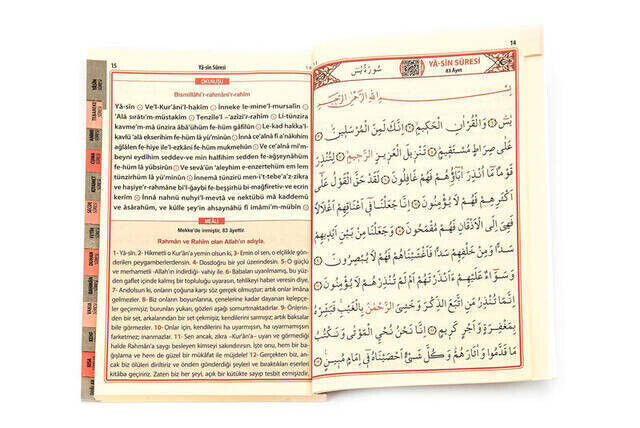 15
Yâ-Sîn Sûresi
OKUNUŞU
Bismillâhi'r-rahmâni'r-rahîm
Yâ-sîn ① Ve'l-Kur'âni'l-hakîm ② İnneke le-mine'l-mürselîn ③
'Alâ sırâtı'm-müstakîm ④ Tenzîle'l-'azîzi'r-rahîm ⑤ Li-tünzira
kavme'm-mâ ünzira âbâühüm fe-hüm gâfilûn ⑥ Le-kad hakka'l-
kavlü 'alâ ekserihim fe-hüm lâ yü'minûn ⑦ İnnâ ce'alnâ fî a'nâkıhim
ağlâlen fe-hiye ile'l-ezkâni fe-hüm mukmehûn ⑧ Ve ce'alnâ mi'm-
beyni eydîhim sedde'v-ve min halfihim sedden fe-ağşeynâhüm
fe-hüm lâ yübsirûn ⑨ Ve sevâün 'aleyhim e-enzertehüm em lem
tünzirhüm lâ yü'minûn ⑩ İnnemâ tünziru meni't-tebe'a'z-zikra
ve haşiye'r-rahmâne bi'l-ğaybi fe-beşşirhü bi-mağfirati'v-ve ecrin
kerîm ⑪ İnnâ nahnü nuhyi'l-mevtâ ve nektübü mâ kaddemû
ve âsârahüm, ve külle şey'in ahsaynâhü fî imâmi'm-mübîn ⑫
MEÂLİ
Mekke'de inmiştir, 83 âyettir.
Rahmân ve Rahîm olan Allah'ın adıyla.
1- Yâ-sîn, 2- Hikmetli o Kur'âna yemin olsun ki, 3- Emin ol sen, o elçilikle gönde-
rilen peygamberlerdensin. 4- Dosdoğru bir yol üzerindesin. 5- O güçlü
ve merhametli -Allah'ın indirdiği- vahiy ile. 6- Babaları uyarılmamış, bu yüz-
den gaflet içinde kalmış bir topluluğu uyarasın, tehlikeyi haber veresin diye.
7- Andolsun ki, onların çoğuna karşı söz gerçek olmuştur; artık onlar imâna
gelmezler. 8- Biz onların boyunlarına, çenelerine kadar dayanan kelepçe-
ler geçirmişiz; burunları yukarı, gözleri aşağı somurtmaktadırlar. 9- Önlerin-
den bir set, arkalarından bir set çekmişiz, kendilerini sarmışız; artık baksalar
bile görmezler. 10- Onlar için, kendilerini ha uyarmışsın, ha uyarmamışsın
farketmez; inanmazlar. 11- Sen ancak, zikra -Kur'âna- uyan ve görmediği
halde Rahmân'a saygı besleyen kimseyi sakındırırsın. İşte onu, hem bir ba-
ğışlama ve hem de güzel bir mükâfat ile müjdele! 12- Gerçekten biz, an-
cak biz ölüleri diriltiriz ve önden gönderdikleri ve bıraktıkları eserleri
kitâba geçiririz. Zaten biz her şeyi, açık bir kütükte sayıp tesbit etmişizdir.
14
سُورَةُ يٰسٓ YÂ-SÎN SÛRESİ
83 Âyet
بِسْمِ اللّٰهِ الرَّحْمٰنِ الرَّحِيمِ
يٰسٓ ۝ وَالْقُرْاٰنِ الْحَكِيمِ ۝ اِنَّكَ لَمِنَ الْمُرْسَلِينَ ۝
عَلٰى صِرَاطٍ مُسْتَقِيمٍ ۝ تَنْزِيلَ الْعَزِيزِ الرَّحِيمِ ۝ لِتُنْذِرَ
قَوْمًا مَٓا اُنْذِرَ اٰبَٓاؤُهُمْ فَهُمْ غَافِلُونَ ۝ لَقَدْ حَقَّ الْقَوْلُ عَلٰٓى
اَكْثَرِهِمْ فَهُمْ لَا يُؤْمِنُونَ ۝ اِنَّا جَعَلْنَا فِٓى اَعْنَاقِهِمْ اَغْلَالًا
فَهِىَ اِلَى الْاَذْقَانِ فَهُمْ مُقْمَحُونَ ۝ وَجَعَلْنَا مِنْ بَيْنِ اَيْدِيهِمْ
سَدًّا وَمِنْ خَلْفِهِمْ سَدًّا فَاَغْشَيْنَاهُمْ فَهُمْ لَا يُبْصِرُونَ ۝
وَسَوَٓاءٌ عَلَيْهِمْ ءَاَنْذَرْتَهُمْ اَمْ لَمْ تُنْذِرْهُمْ لَا يُؤْمِنُونَ ۝
اِنَّمَا تُنْذِرُ مَنِ اتَّبَعَ الذِّكْرَ وَخَشِىَ الرَّحْمٰنَ بِالْغَيْبِ فَبَشِّرْهُ
بِمَغْفِرَةٍ وَاَجْرٍ كَرِيمٍ ۝ اِنَّا نَحْنُ نُحْىِ الْمَوْتٰى وَنَكْتُبُ
مَا قَدَّمُوا وَاٰثَارَهُمْ وَكُلَّ شَىْءٍ اَحْصَيْنَاهُ فِٓى اِمَامٍ مُبِينٍ ۝